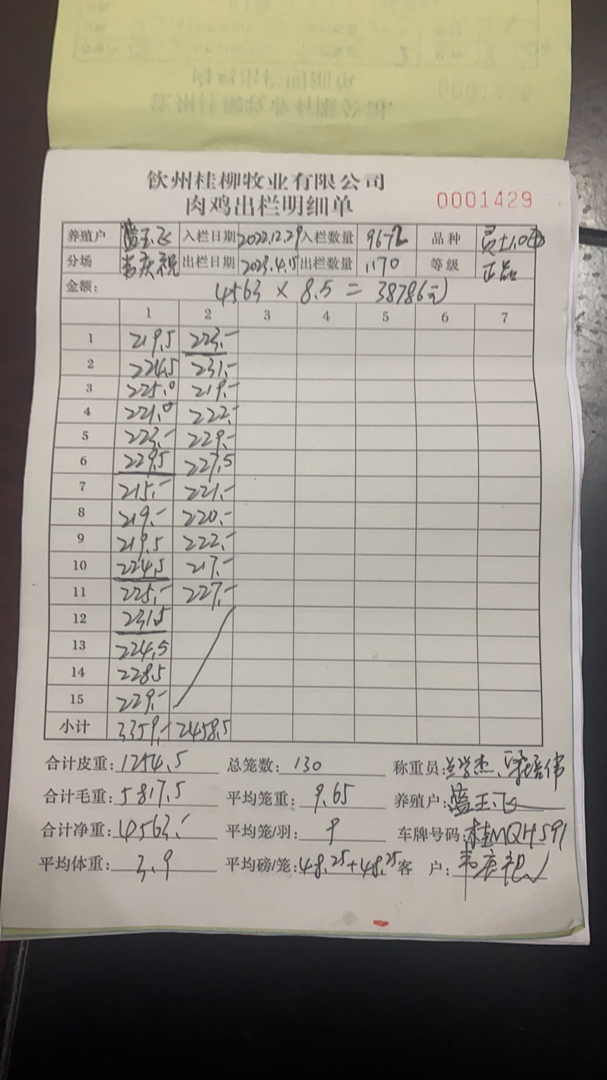 钦州桂柳牧业有限公司
肉鸡出栏明细单 0001429
养殖户 蓝玉飞 入栏日期 2022.12.29 入栏数量 9672 品种
分场 韦庆祝 出栏日期 2023.4.15 出栏数量 1170 等级 正品
金额: 4563 × 8.5 = 38786元
1 2 3 4 5 6 7
1 219.5 223.-
2 224.5 231.-
3 225.0 219.-
4 221.0 222.-
5 223.- 229.-
6 229.5 227.5
7 215.- 221.-
8 219.- 220.-
9 219.5 222.-
10 224.5 217.-
11 225.- 227.-
12 231.5
13 224.5
14 228.5
15 229.-
小计 3359.- 2458.5
合计皮重: 1254.5 总笼数: 130 称重员:
合计毛重: 5817.5 平均笼重: 9.65 养殖户: 蓝玉飞
合计净重: 4563.- 平均笼/羽: 9 车牌号码: 桂MQH591
平均体重: 3.9 平均磅/笼: 48.25+48.25 客 户: 韦庆祝